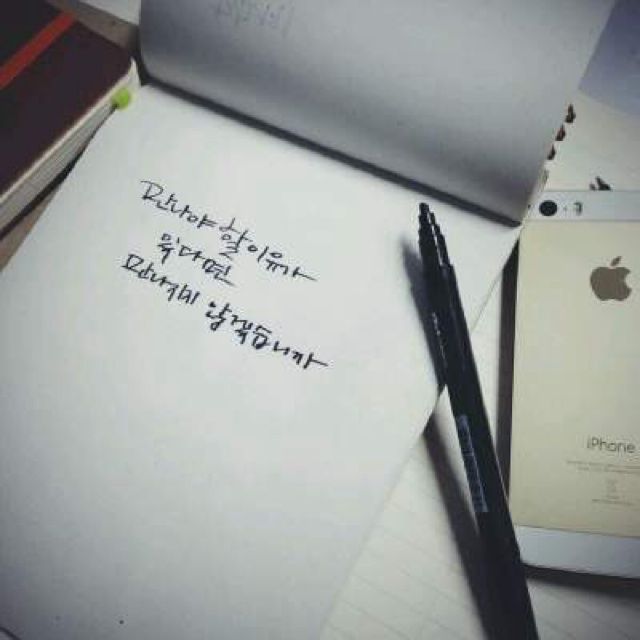 만나야 할 이유가
있다면
만나지지 않겠습니까
iPhone